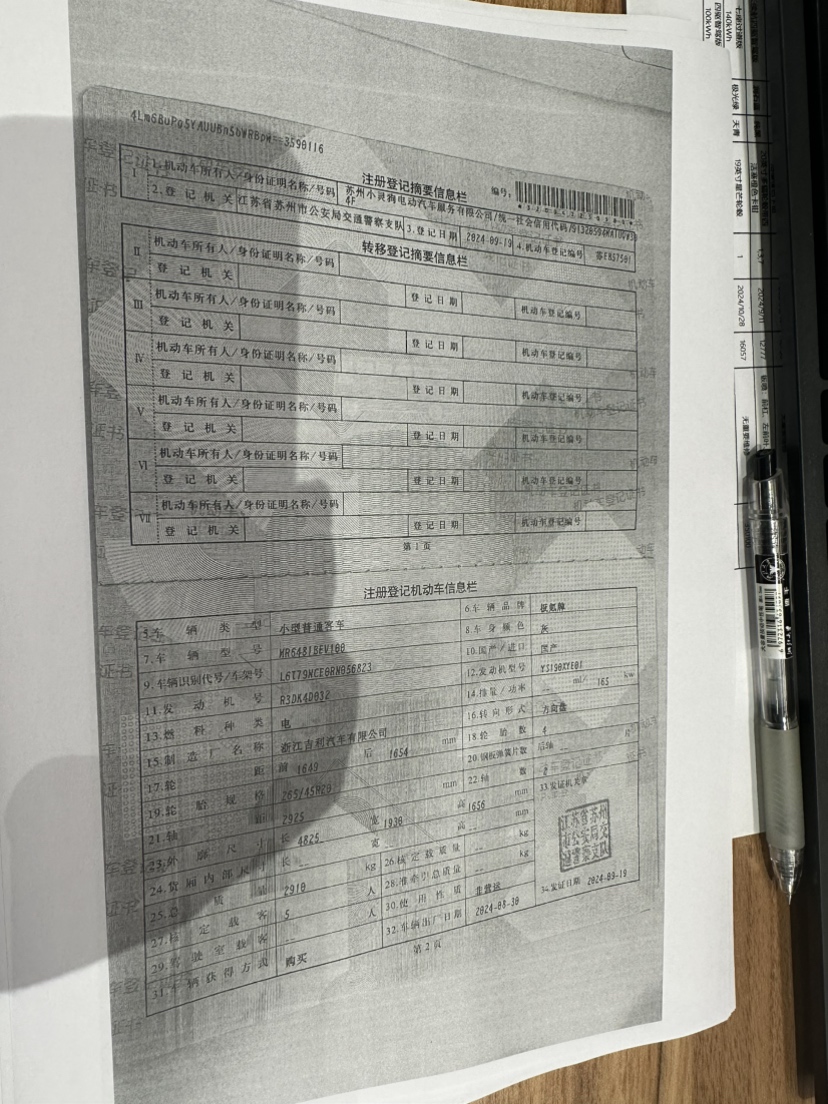 3590116
注册登记摘要信息栏
编号:
I 1.机动车所有人/身份证明名称/号码 苏州小灵狗电动汽车服务有限公司/统一社会信用代码/
2.登 记 机 关 江苏省苏州市公安局交通警察支队 3.登记日期 2024-09-19 4.机动车登记编号
转移登记摘要信息栏
II 机动车所有人/身份证明名称/号码
登 记 机 关 登 记 日 期 机动车登记编号
III 机动车所有人/身份证明名称/号码
登 记 机 关 登 记 日 期 机动车登记编号
IV 机动车所有人/身份证明名称/号码
登 记 机 关 登 记 日 期 机动车登记编号
V 机动车所有人/身份证明名称/号码
登 记 机 关 登 记 日 期 机动车登记编号
VI 机动车所有人/身份证明名称/号码
登 记 机 关 登 记 日 期 机动车登记编号
VII 机动车所有人/身份证明名称/号码
登 记 机 关 登 记 日 期 机动车登记编号
第 1 页
注册登记机动车信息栏
5.车 辆 类 型 小型普通客车 6.车 辆 品 牌 极氪牌
7.车 辆 型 号 MR6481BEV100 8.车 身 颜 色 灰
9.车辆识别代号/车架号 10.国产/进口 国产
11.发 动 机 号 R3DK4D032 12.发动机型号
13.燃 料 种 类 电 14.排量/功率 -- ml/ 165 kw
15.制 造 厂 名 称 浙江吉利汽车有限公司 16.转 向 形 式 方向盘
17.轮 距 前 1649 后 1654 mm 18.轮 胎 数 4
19.轮 胎 规 格 265/45R20 20.钢板弹簧片数 后轴 -- 片
21.轴 距 2925 mm 22.轴 数 2
23.外 廓 尺 寸 长 4825 宽 1930 高 1656 mm 33.发证机关章
24.货厢内部尺寸 长 -- 宽 -- 高 -- mm
25.总 质 量 2910 kg 26.核 定 载 质 量 -- kg
27.核 定 载 客 5 人 28.准牵引总质量 -- kg
29.驾 驶 室 载 客 -- 人 30.使 用 性 质 非营运
31.车 辆 获 得 方 式 购买 32.车辆出厂日期 2024-08-30 34.发证日期 2024-09-19
江苏省苏州市公安局交通警察支队
第 2 页
140kWh
四驱智驾版
100kWh
极光绿 天青
1 2024/10/28 16057